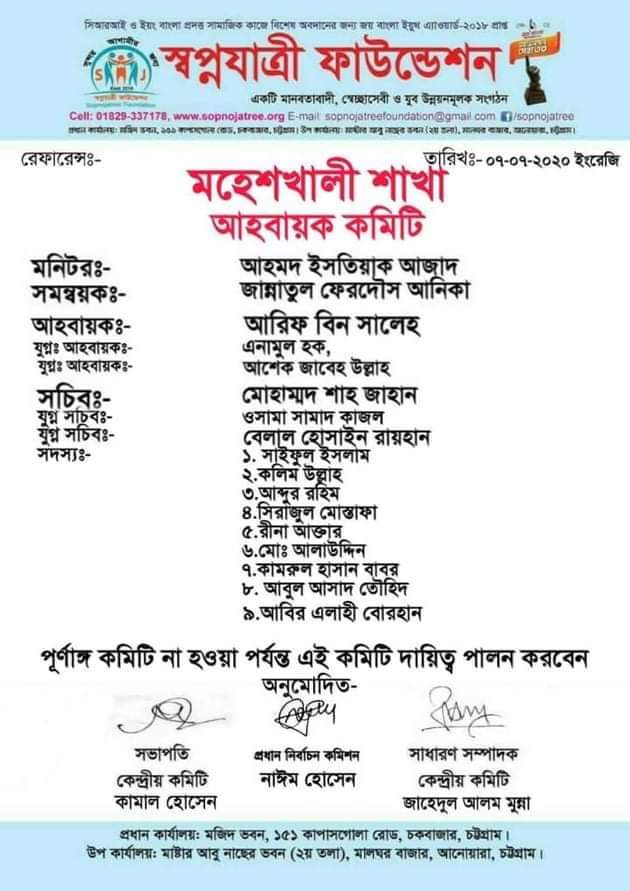 সিআরআই ও ইয়ং বাংলা প্রদত্ত সামাজিক কাজে বিশেষ অবদানের জন্য জয় বাংলা ইয়ুথ এ্যাওয়ার্ড-২০১৮ প্রাপ্ত
স্বপ্নযাত্রী ফাউন্ডেশন
একটি মানবতাবাদী, স্বেচ্ছাসেবী ও যুব উন্নয়নমূলক সংগঠন
সুন্দর আগামীর জন্য
S M J
স্বপ্নযাত্রী ফাউন্ডেশন
Sopnojatree Foundation
Cell: 01829-337178, www.sopnojatree.org E-mail: sopnojatreefoundation@gmail.com f/sopnojatree
প্রধান কার্যালয়: মজিদ ভবন, ১৫১ কাপাসগোলা রোড, চকবাজার, চট্টগ্রাম। উপ কার্যালয়: মাষ্টার আবু নাছের ভবন (২য় তলা), মালঘর বাজার, আনোয়ারা, চট্টগ্রাম।
রেফারেন্সঃ- তারিখঃ- ০৭-০৭-২০২০ ইংরেজি
মহেশখালী শাখা
আহবায়ক কমিটি
মনিটরঃ- আহমদ ইসতিয়াক আজাদ
সমন্বয়কঃ- জান্নাতুল ফেরদৌস আনিকা
আহবায়কঃ- আরিফ বিন সালেহ
যুগ্নঃ আহবায়কঃ- এনামুল হক,
যুগ্নঃ আহবায়কঃ- আশেক জাবেহ উল্লাহ
সচিবঃ- মোহাম্মদ শাহ জাহান
যুগ্ন সচিবঃ- ওসামা সামাদ কাজল
যুগ্ন সচিবঃ- বেলাল হোসাইন রায়হান
সদস্যঃ- ১. সাইফুল ইসলাম
২.কলিম উল্লাহ
৩.আব্দুর রহিম
৪.সিরাজুল মোস্তাফা
৫.রীনা আক্তার
৬.মোঃ আলাউদ্দিন
৭.কামরুল হাসান বাবর
৮. আবুল আসাদ তৌহিদ
৯.আবির এলাহী বোরহান
পূর্ণাঙ্গ কমিটি না হওয়া পর্যন্ত এই কমিটি দায়িত্ব পালন করবেন
অনুমোদিত-
সভাপতি প্রধান নির্বাচন কমিশন সাধারণ সম্পাদক
কেন্দ্রীয় কমিটি নাঈম হোসেন কেন্দ্রীয় কমিটি
কামাল হোসেন জাহেদুল আলম মুন্না
প্রধান কার্যালয়: মজিদ ভবন, ১৫১ কাপাসগোলা রোড, চকবাজার, চট্টগ্রাম।
উপ কার্যালয়: মাষ্টার আবু নাছের ভবন (২য় তলা), মালঘর বাজার, আনোয়ারা, চট্টগ্রাম।